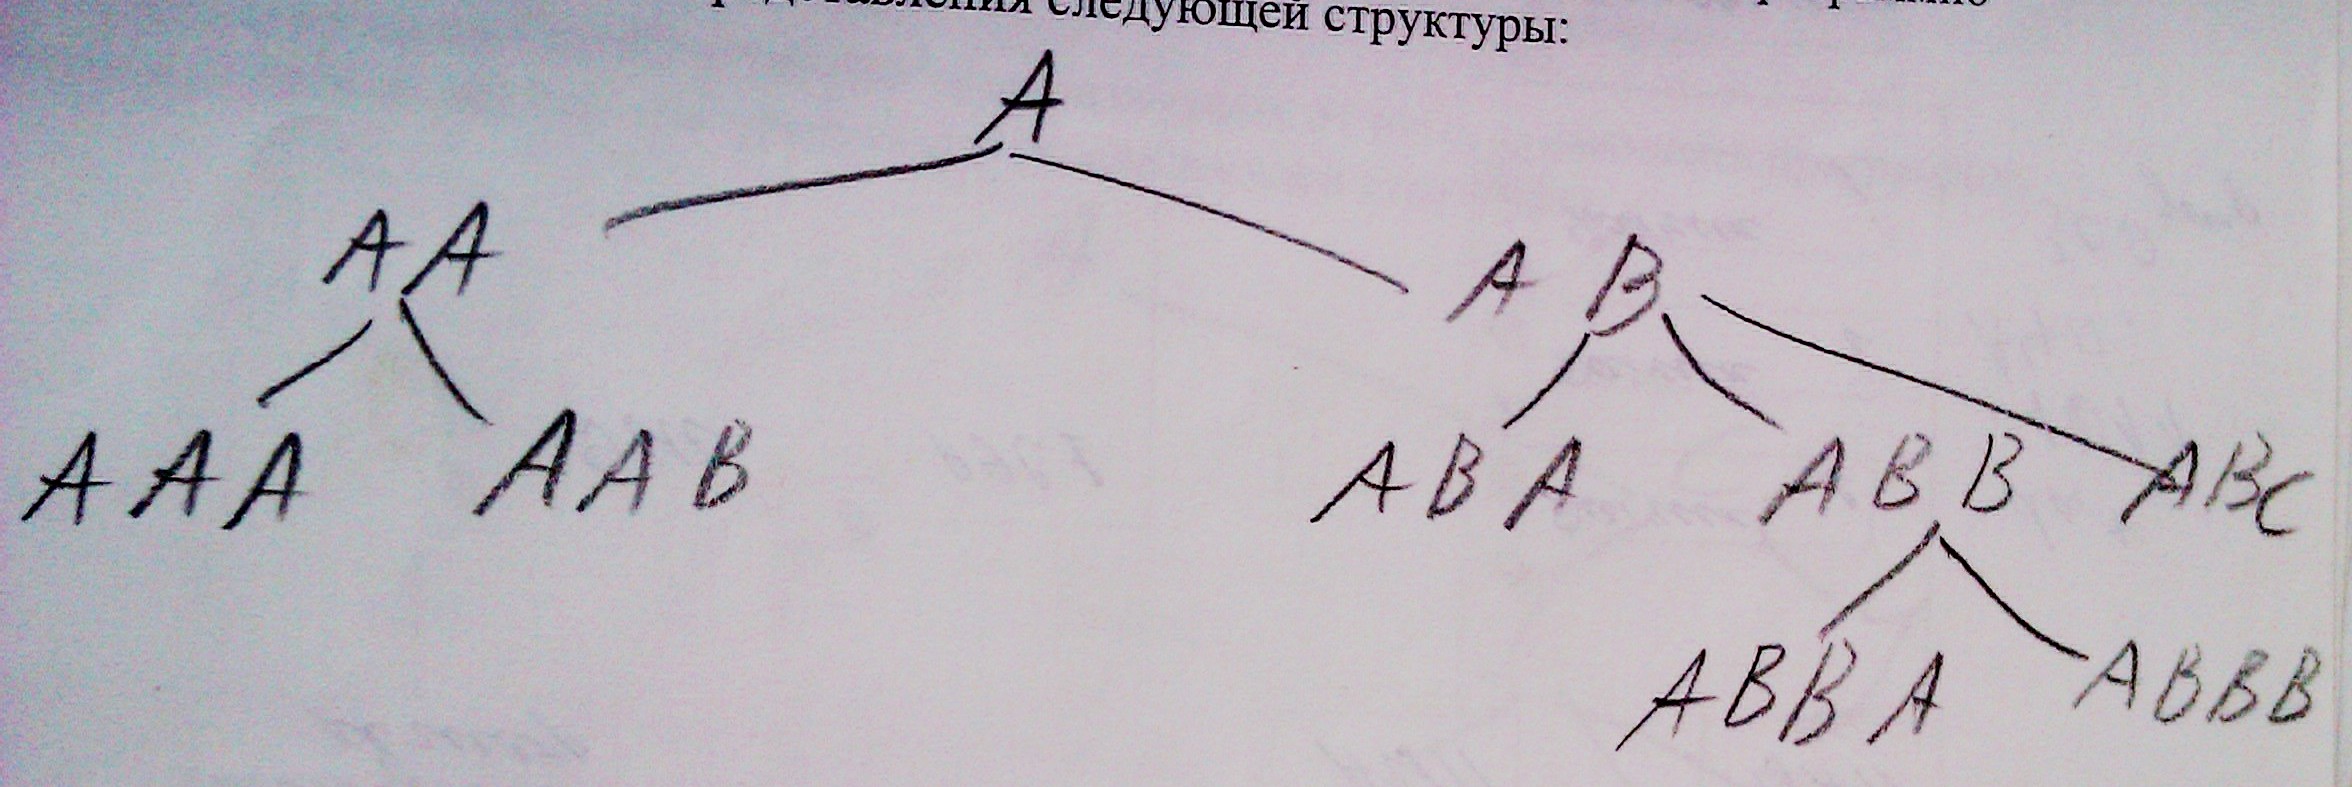 следующей структуры:
A
AA
AB
AAA AAB ABA ABB ABC
ABBA ABBB